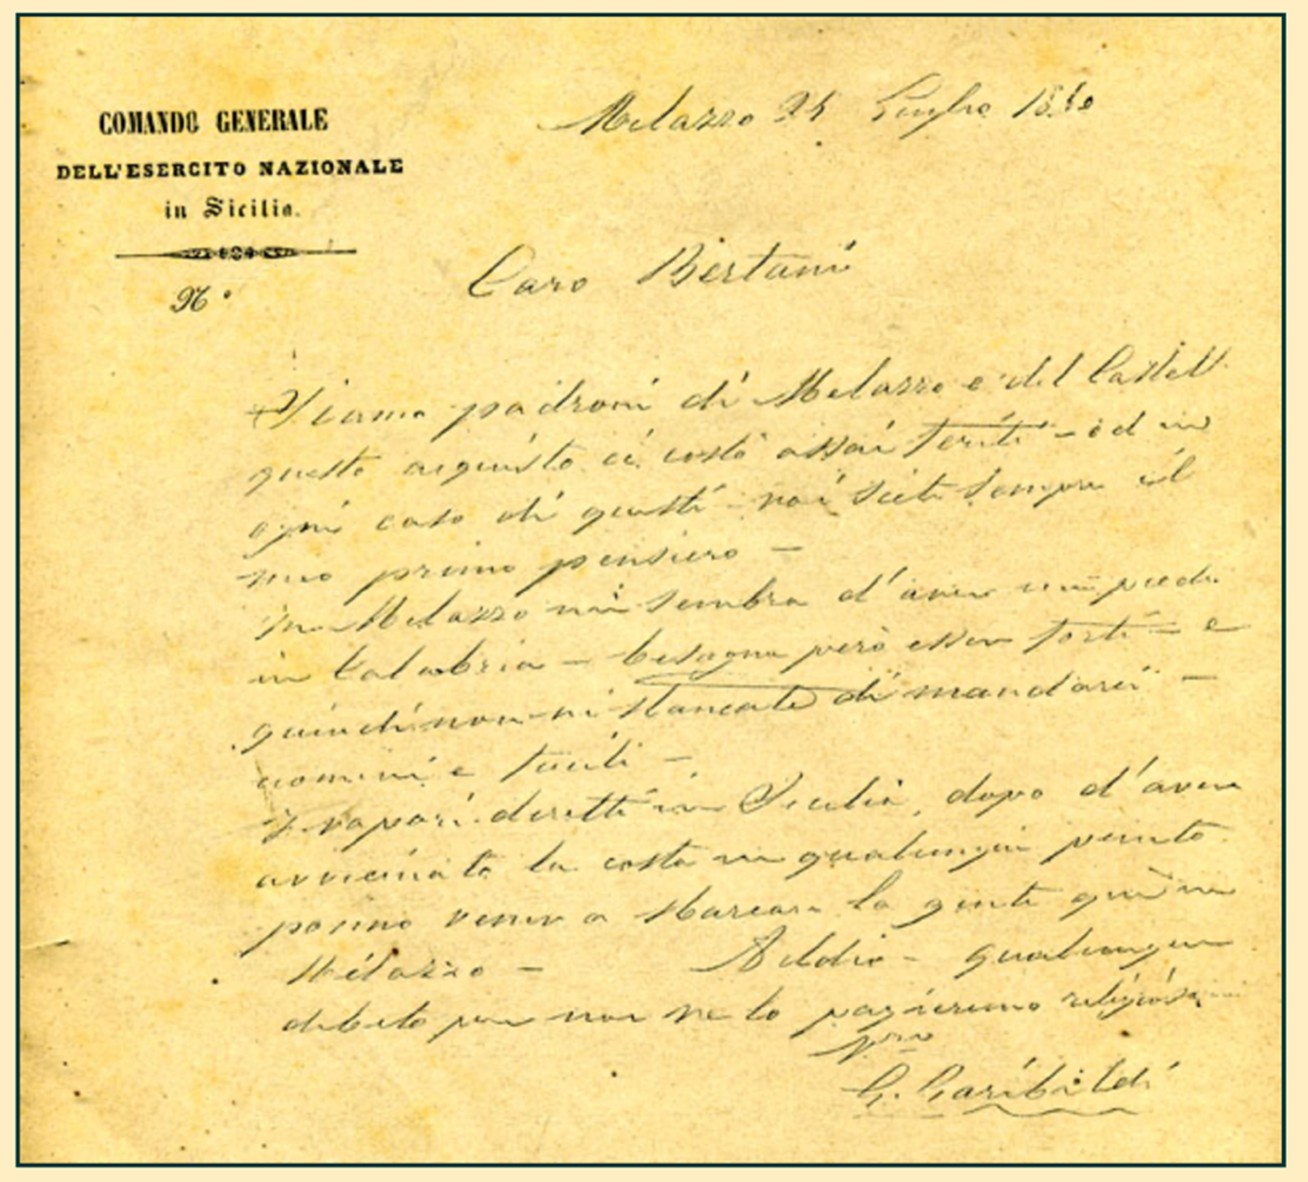 COMANDO GENERALE
DELL'ESERCITO NAZIONALE
in Sicilia.
N°
Melazzo 24 Luglio 1860
Caro Bertani
Siamo padroni di Melazzo e del Castell
questo acquisto ci costò assai feriti - ed in
ogni caso di questi siete sempre il
mio primo pensiero -
In Melazzo mi sembra d'aver un piede
in Calabria - bisogna però esser forti - e
quindi non vi stancate di mandarci -
uomini e fucili -
I vapori diretti in Sicilia, dopo d'aver
avvicinato la costa in qualunque punto
ponno venir a sbarcare la gente quì in
Melazzo - Addio - qualunque
debito per noi ve lo pagheremo
Vro
G. Garibaldi